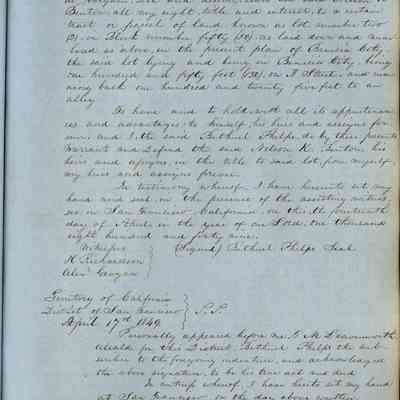 Benton, all my right, title and interest, to a certain
tract or parcel of land, known as lot number two
(2), in Block number fifty (50), as laid down and num-
bered as above, in the present plan of Benicia City,
the said lot lying and being in Benicia City, being
one hundred and fifty feet (150), on I Street, and run-
ning back one hundred and twenty five feet to an
alley
To have and to hold with all its appurtenan-
ces and advantages, to himself, his heirs and assigns for
ever, and I, the said Bethuel Phelps, do by these presents
warrant and defend the said Nelson K. Benton, his
heirs and assigns, in the title to said lot, for myself,
my heirs and assigns forever.
In testimony whereof, I have hereunto set my
hand and seal, in the presence of the assisting witness
es, in San Francisco, California, on this, the fourteenth
day of April, in the year of our Lord, One thousand
eight hundred and forty nine.
Witness (Signed) Bethuel Phelps Seal
H Richardson
Alexr Grogan
Territory of California
District of San Francisco S.S.
April 17th 1849
Personally appeared before me, T. M. Leavenworth,
Alcalde for this District, Bethuel Phelps the sub-
scriber to the foregoing indenture, and acknowledged
the above signature, to be his true act and deed
In witness whereof, I have hereto set my hand
at San Francisco, on the day above written